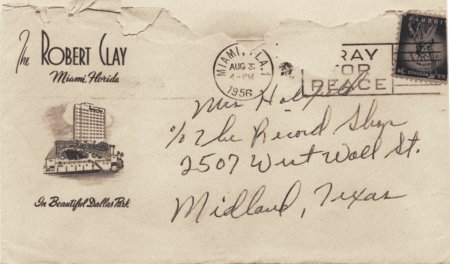 The ROBERT CLAY
Miami, Florida
In Beautiful Dallas Park
MIAMI, FLA. 1
AUG 3
4-PM
1956
PRAY
FOR
PEACE
LIBERTY
Mrs
c/o The Record Shop
2507 West Wall St.
Midland, Texas